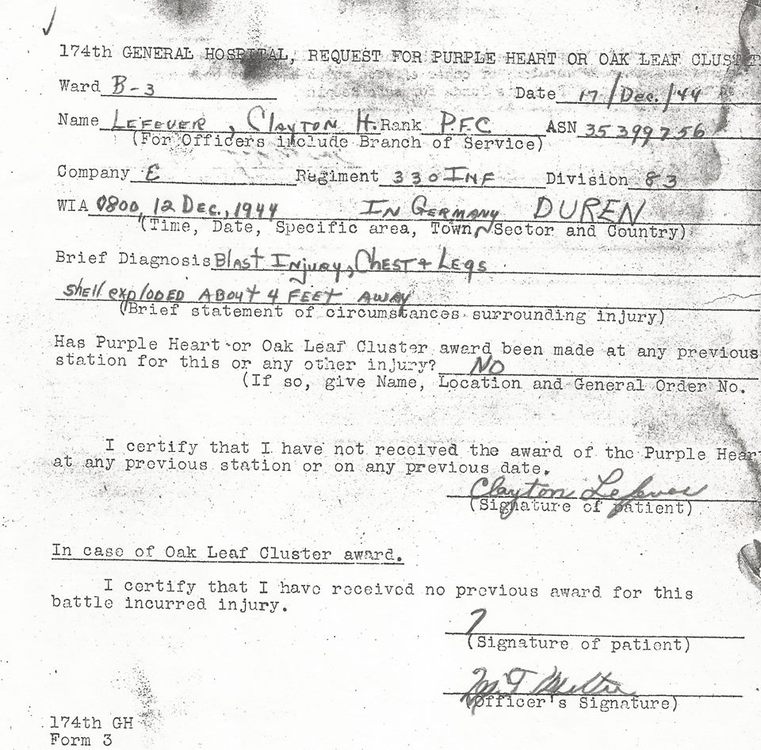 174th GENERAL HOSPITAL, REQUEST FOR PURPLE HEART OR OAK LEAF CLUSTE
Ward B-3 Date 17/Dec./44
Name LEFEVER, CLAYTON H. Rank P.F.C ASN 35399756
(For Officers include Branch of Service)
Company E Regiment 330 INF Division 83
WIA 0800, 12 DEC., 1944 IN GERMANY DUREN
(Time, Date, Specific area, Town, Sector and Country)
Brief Diagnosis BLAST INJURY, CHEST & LEGS
Shell exploded ABOUT 4 FEET AWAY
(Brief statement of circumstances surrounding injury)
Has Purple Heart or Oak Leaf Cluster award been made at any previous
station for this or any other injury? NO
(If so, give Name, Location and General Order No.
I certify that I have not received the award of the Purple Hear
at any previous station or on any previous date.
Clayton Lefever
(Signature of patient)
In case of Oak Leaf Cluster award.
I certify that I have received no previous award for this
battle incurred injury.
(Signature of patient)
(Officer's Signature)
174th GH
Form 3